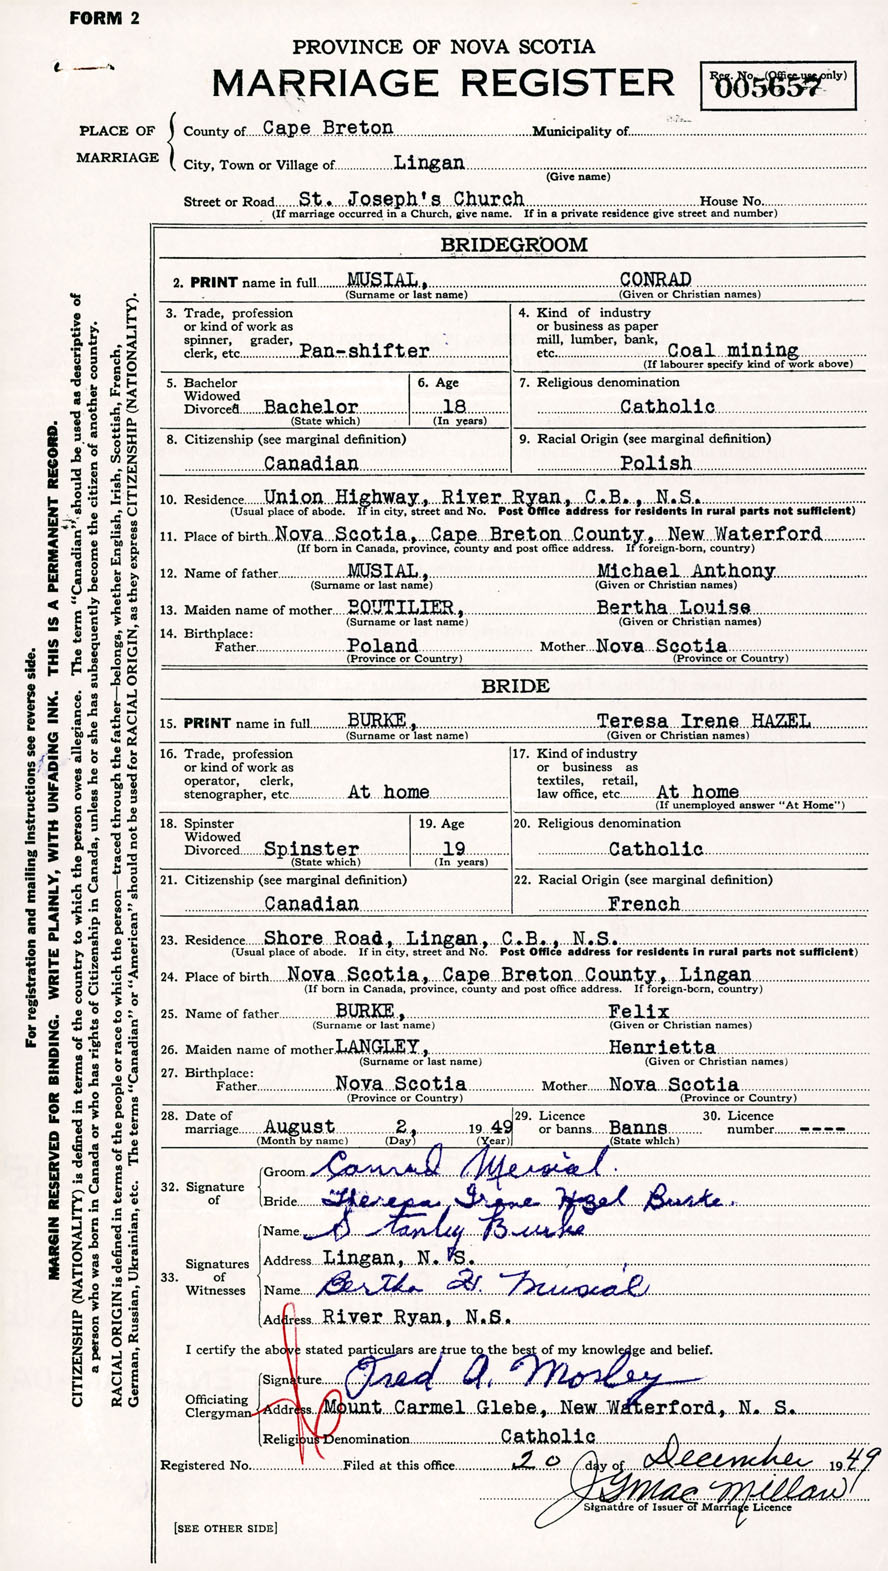 FORM 2
PROVINCE OF NOVA SCOTIA
MARRIAGE REGISTER
Reg. No. (Office use only)
005657
PLACE OF MARRIAGE
County of Cape Breton Municipality of
City, Town or Village of Lingan
(Give name)
Street or Road St. Joseph's Church House No.
(If marriage occurred in a Church, give name. If in a private residence give street and number)
BRIDEGROOM
2. PRINT name in full MUSIAL, CONRAD
(Surname or last name) (Given or Christian names)
3. Trade, profession
or kind of work as
spinner, grader,
clerk, etc. Pan-shifter
4. Kind of industry
or business as paper
mill, lumber, bank,
etc. Coal mining
(If labourer specify kind of work above)
5. Bachelor
Widowed
Divorced Bachelor
(State which)
6. Age
18
(In years)
7. Religious denomination
Catholic
8. Citizenship (see marginal definition)
Canadian
9. Racial Origin (see marginal definition)
Polish
10. Residence Union Highway, River Ryan, C.B., N.S.
(Usual place of abode. If in city, street and No. Post Office address for residents in rural parts not sufficient)
11. Place of birth Nova Scotia, Cape Breton County, New Waterford
(If born in Canada, province, county and post office address. If foreign-born, country)
12. Name of father MUSIAL, Michael Anthony
(Surname or last name) (Given or Christian names)
13. Maiden name of mother BOUTILIER, Bertha Louise
(Surname or last name) (Given or Christian names)
14. Birthplace:
Father Poland Mother Nova Scotia
(Province or Country) (Province or Country)
BRIDE
15. PRINT name in full BURKE, Teresa Irene HAZEL
(Surname or last name) (Given or Christian names)
16. Trade, profession
or kind of work as
operator, clerk,
stenographer, etc. At home
17. Kind of industry
or business as
textiles, retail,
law office, etc. At home
(If unemployed answer "At Home")
18. Spinster
Widowed
Divorced Spinster
(State which)
19. Age
19
(In years)
20. Religious denomination
Catholic
21. Citizenship (see marginal definition)
Canadian
22. Racial Origin (see marginal definition)
French
23. Residence Shore Road, Lingan, C.B., N.S.
(Usual place of abode. If in city, street and No. Post Office address for residents in rural parts not sufficient)
24. Place of birth Nova Scotia, Cape Breton County, Lingan
(If born in Canada, province, county and post office address. If foreign-born, country)
25. Name of father BURKE, Felix
(Surname or last name) (Given or Christian names)
26. Maiden name of mother LANGLEY, Henrietta
(Surname or last name) (Given or Christian names)
27. Birthplace:
Father Nova Scotia Mother Nova Scotia
(Province or Country) (Province or Country)
28. Date of
marriage August 2, 1949
(Month by name) (Day) (Year)
29. Licence
or banns Banns
(State which)
30. Licence
number ----
32. Signature of
Groom Conrad Musial.
Bride Theresa Irene Hazel Burke.
33. Signatures of Witnesses
Name Stanley Burke
Address Lingan, N. S.
Name Bertha Musial
Address River Ryan, N.S.
I certify the above stated particulars are true to the best of my knowledge and belief.
Officiating Clergyman
Signature Fred A. Morley
Address Mount Carmel Glebe, New Waterford, N. S.
Religious Denomination Catholic
Registered No. Filed at this office 20 day of December 1949
J G MacMillan
Signature of Issuer of Marriage Licence
[SEE OTHER SIDE]
For registration and mailing instructions see reverse side.
MARGIN RESERVED FOR BINDING. WRITE PLAINLY, WITH UNFADING INK. THIS IS A PERMANENT RECORD.
CITIZENSHIP (NATIONALITY) is defined in terms of the country to which the person owes allegiance. The term "Canadian" should be used as descriptive of
a person who was born in Canada or who has rights of Citizenship in Canada, unless he or she has subsequently become the citizen of another country.
RACIAL ORIGIN is defined in terms of the people or race to which the person—traced through the father—belongs, whether English, Irish, Scottish, French,
German, Russian, Ukrainian, etc. The terms "Canadian" or "American" should not be used for RACIAL ORIGIN, as they express CITIZENSHIP (NATIONALITY).